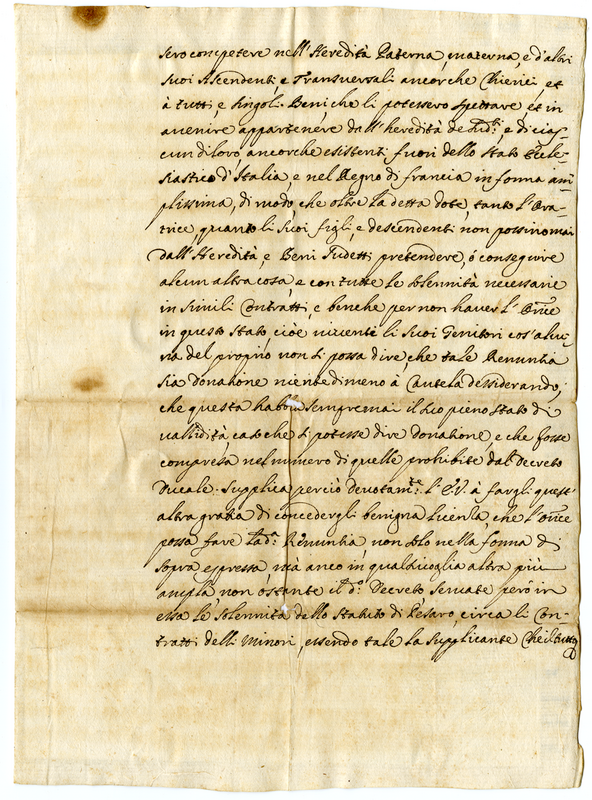 sero competere nell'Heredità Paterna, materna, e d'altri
suoi Ascendenti, e Transversali ancorche Chierici, et
à tutti, e singoli Beni, che li potessero spettare, et in
avenire appartenere dall'heredità de sud.ti, e di cias-
cun di loro, ancorche esistenti fuori dello Stato Eccle-
siastico d'Italia, e nel Regno di francia in forma am-
plissima, di modo, che oltre la detta dote, tanto l'Ora-
trice, quanto li suoi figli, e descendenti non possino mai
dall'Heredità, e Beni sudetti pretendere, ó conseguire
alcun altra cosa, e con tutte le solennità necessarie
in simili Contratti, e benche per non haver l'Orice
in questo Stato, cioè viventi li suoi Genitori cos'alcu-
na del proprio non si possa dire, che tale Renuntia
sia Donatione nientedimeno à Cautela desiderando,
che questa habbia sempremai il suo pieno stato di
validità, caso che si potesse dire donatione, e che fosse
compresa nel numero di quelle prohibite dal Decreto
Ducale. Supplica perciò Devotam.te l'E.V. à fargli quest'
altra gratia di concedergli benigna licenza, che l'Orice
possa fare la d.a Renuntia, non solo nella forma di
sopra espressa, mà anco in qualsivoglia altra più
ampla, non ostante il d.o Decreto, servate però in
essa le solennità dello Statuto di Pesaro, circa li Con-
tratti delli Minori, essendo tale la supplicante Che il tutto